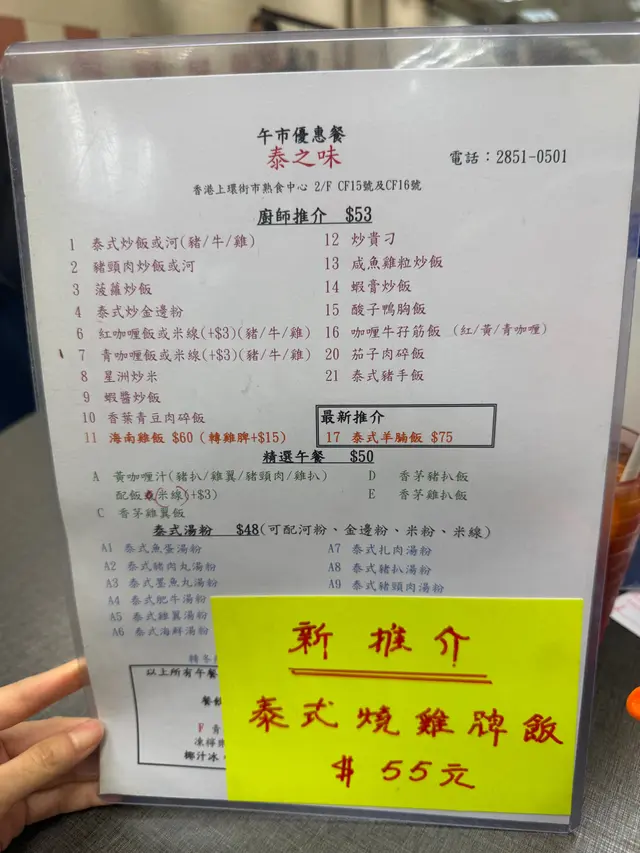 午市優惠餐
泰之味
電話：2851-0501
香港上環街市熟食中心 2/F CF15號及CF16號
廚師推介 $53
1 泰式炒飯或河(豬/牛/雞)
2 豬頸肉炒飯或河
3 菠蘿炒飯
4 泰式炒金邊粉
6 紅咖喱飯或米線(+$3)(豬/牛/雞)
7 青咖喱飯或米線(+$3)(豬/牛/雞)
8 星洲炒米
9 蝦醬炒飯
10 香葉青豆肉碎飯
11 海南雞飯 $60 (轉雞脾+$15)
12 炒貴刁
13 咸魚雞粒炒飯
14 蝦膏炒飯
15 酸子鴨胸飯
16 咖喱牛孖筋飯 (紅/黃/青咖喱)
20 茄子肉碎飯
21 泰式豬手飯
最新推介
17 泰式羊腩飯 $75
精選午餐 $50
A 黃咖喱汁(豬扒/雞翼/豬頸肉/雞扒)
配飯 米線(+$3)
C 香茅雞翼飯
D 香茅豬扒飯
E 香茅雞扒飯
泰式湯粉 $48(可配河粉、金邊粉、米粉、米線)
A1 泰式魚蛋湯粉
A2 泰式豬肉丸湯粉
A3 泰式墨魚丸湯粉
A4 泰式肥牛湯粉
A5 泰式雞翼湯粉
A6 泰式海鮮湯粉
A7 泰式扎肉湯粉
A8 泰式豬扒湯粉
A9 泰式豬頸肉湯粉
轉冬
以上所有午餐
餐
F 青
凍檸
椰汁冰
新推介
泰式燒雞牌飯
$ 55元